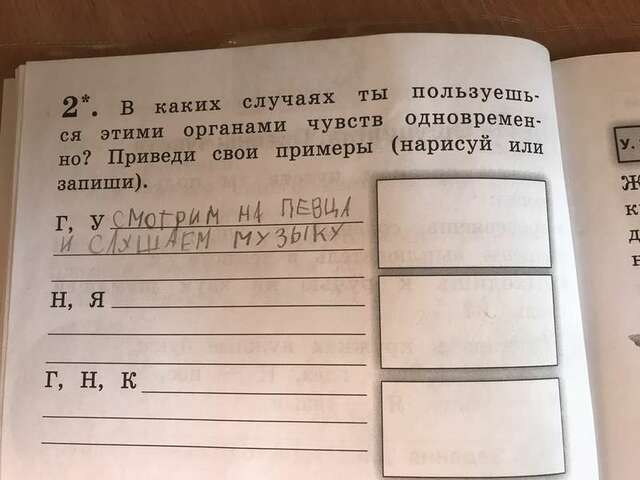 2*. В каких случаях ты пользуешь-
ся этими органами чувств одновремен-
но? Приведи свои примеры (нарисуй или
запиши).
Г, У СМОТРИМ НА ПЕВЦА
И СЛУШАЕМ МУЗЫКУ
Н, Я
Г, Н, К
У.
Ж
к
д
н